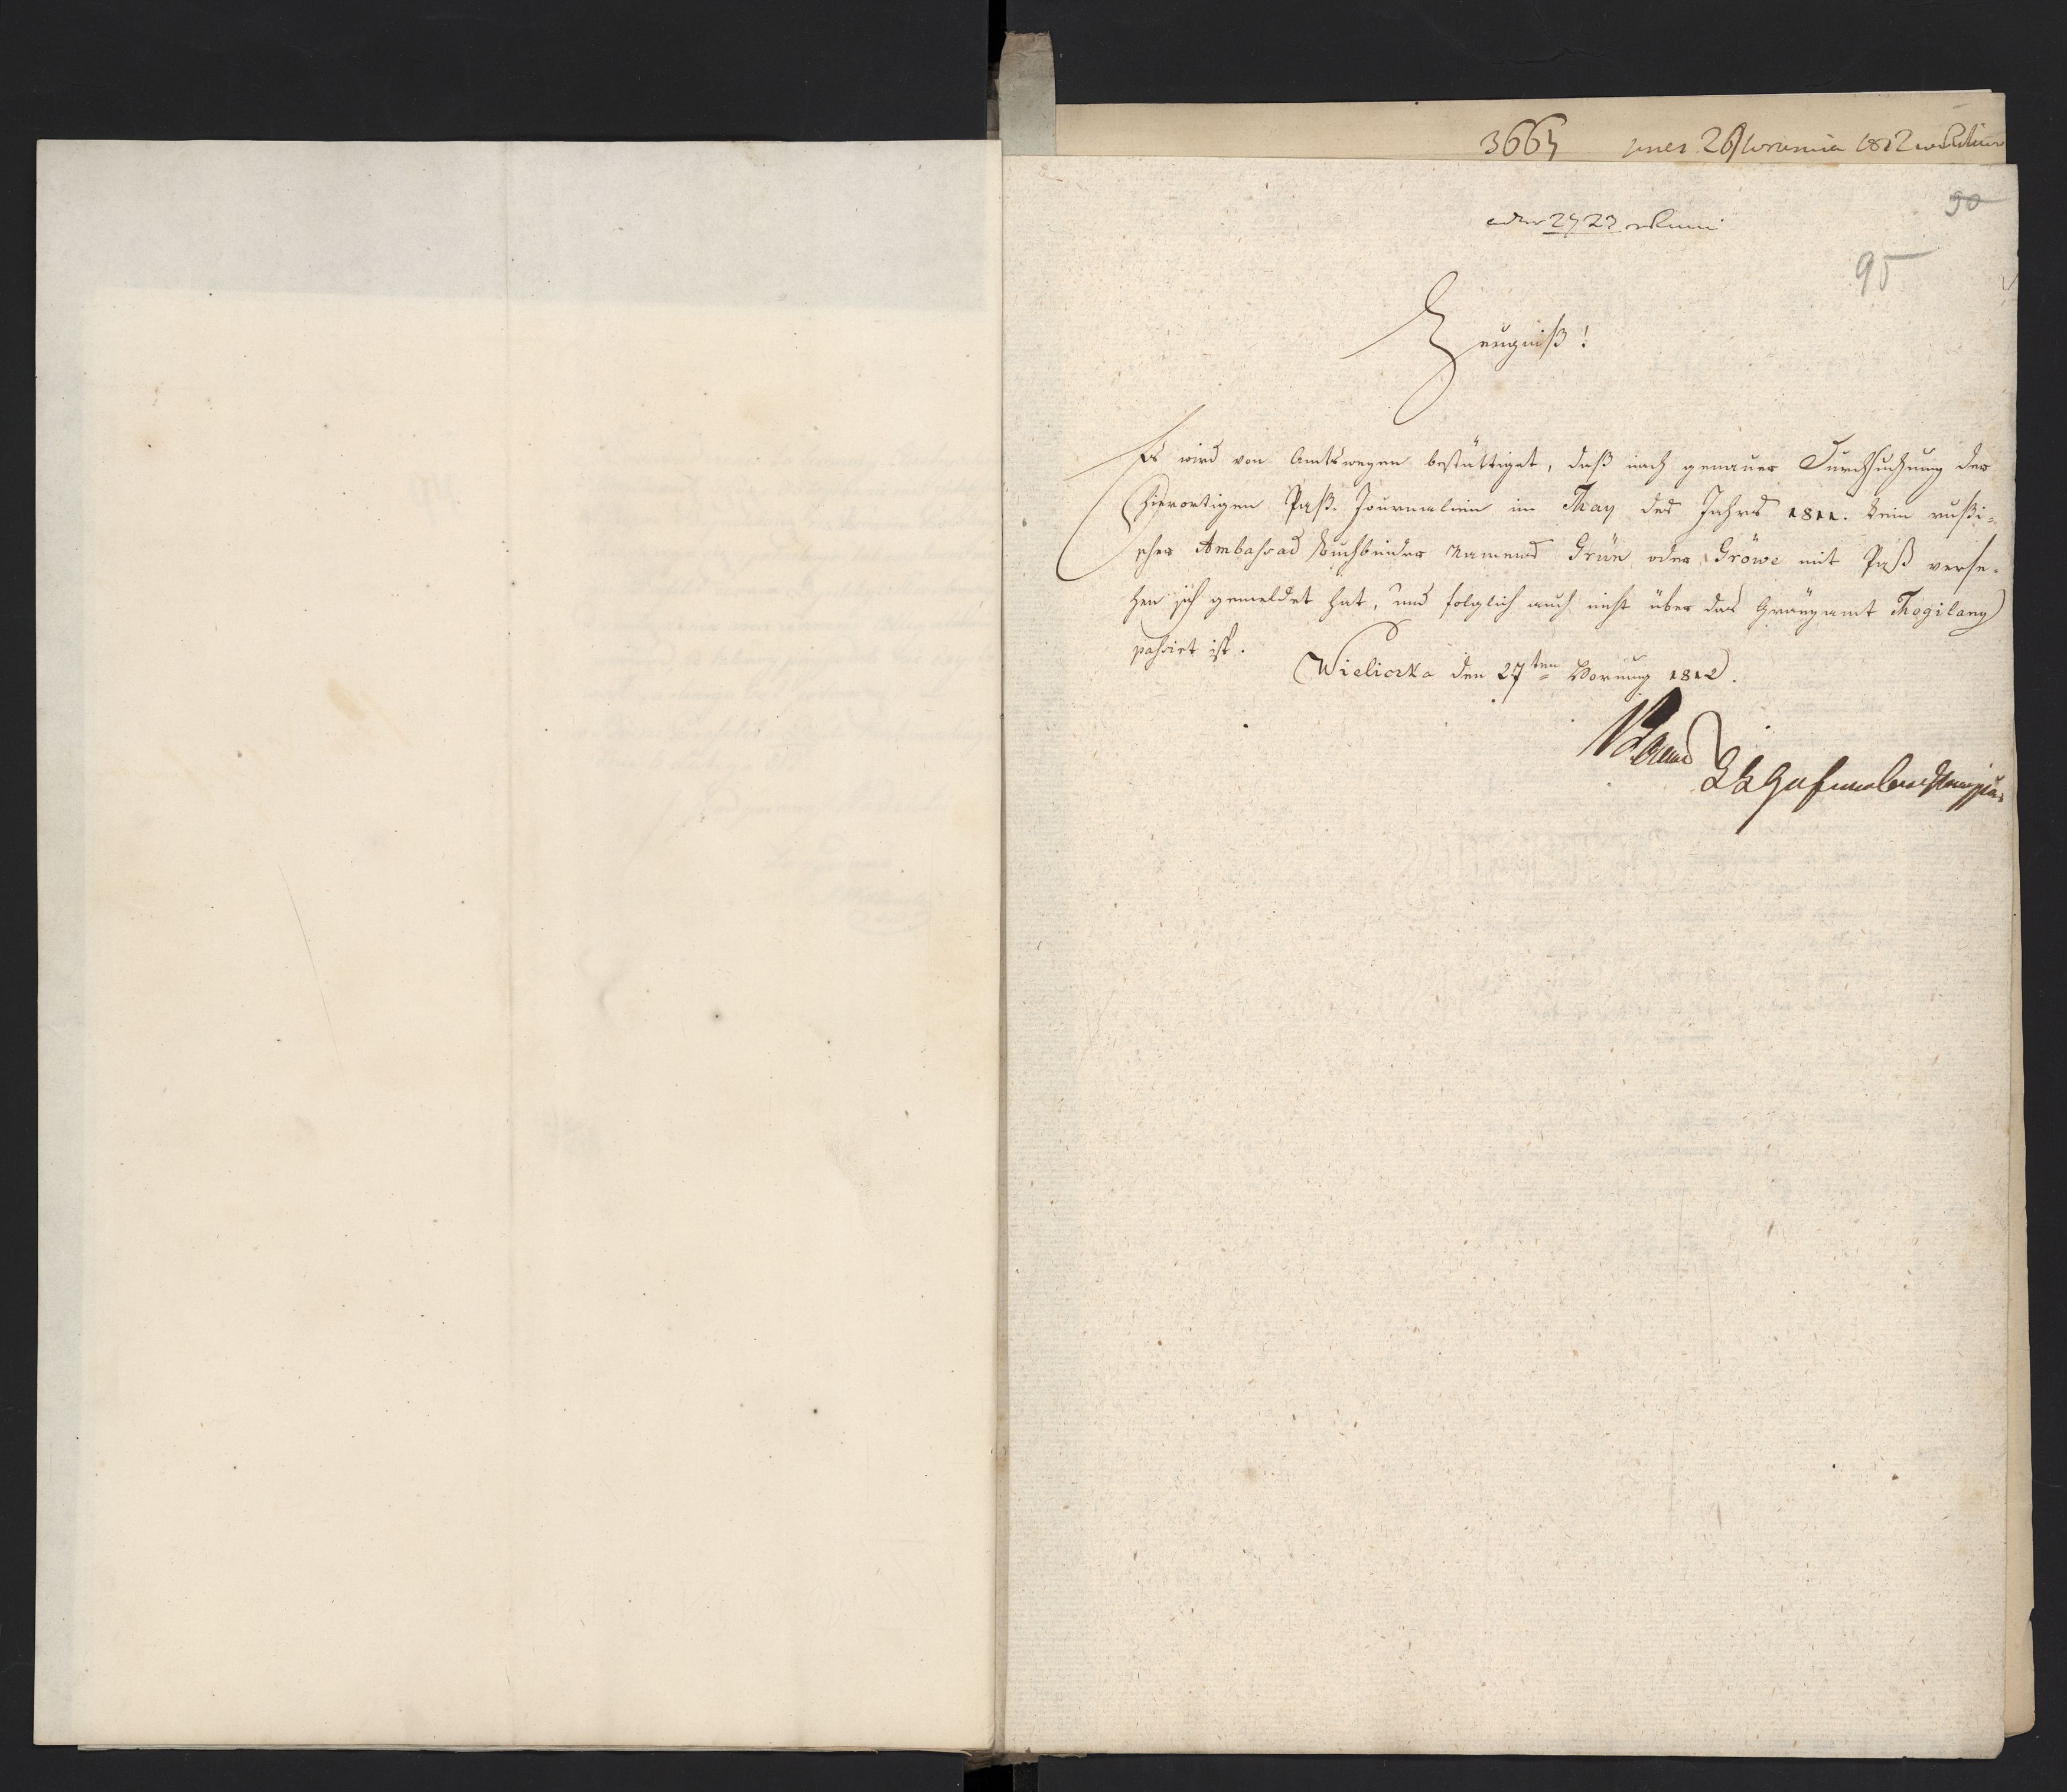 3664 26 1812
ad 2723
90
95
Zeugniß!
Es wird von Amtswegen bestättiget, daß nach genauer Durchsuchung der
hierortigen Paß-Journalien im May des Jahrs 1811. kein rußi-
scher Ambassad Buchbinder Namens Grün oder Gröwe mit Paß verse-
hen sich gemeldet hat, und folglich auch nicht über das Gränzamt Mogilany
passiret ist.
Wieliczka den 27ten Hornung 1812.